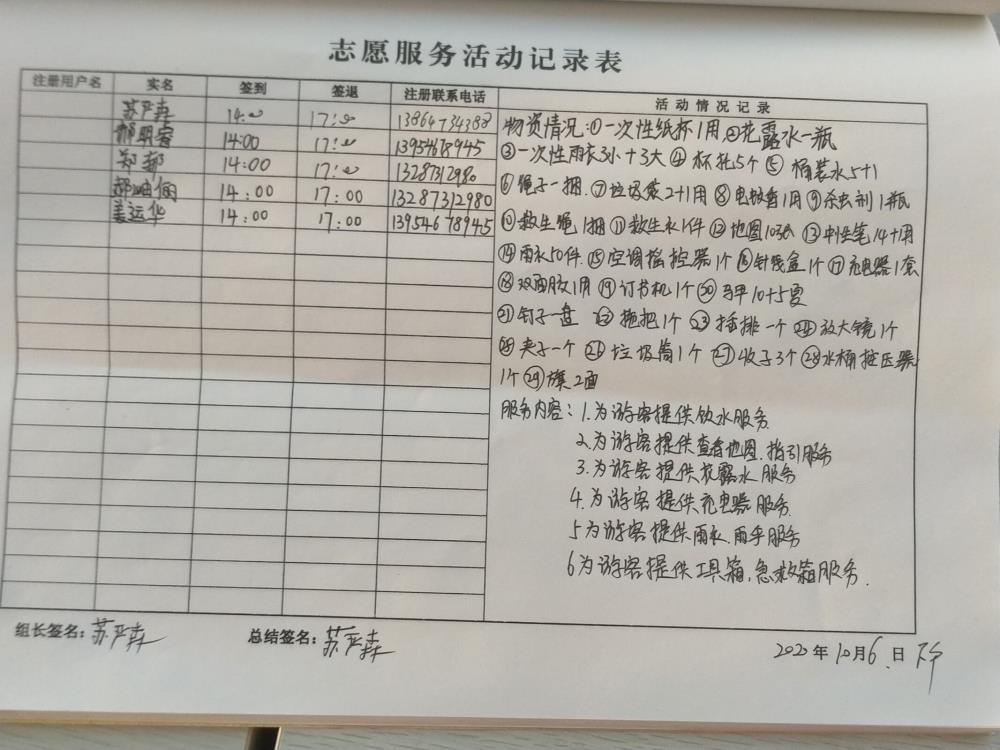 志愿服务活动记录表
注册用户名 实名 签到 签退 注册联系电话 活动情况记录
苏严森 14:00 17:00 13864734388
17:00 13954678945
14:00
郑 14:00 17:00 13287312980
14:00 17:00 13287312980
姜运华 14:00 17:00 13954678945
物资情况:①一次性纸杯1用 ②花露水一瓶
③一次性雨衣3小+3大 ④杯托5个 ⑤桶装水5+1
⑥绳子一捆 ⑦垃圾袋2+1用 ⑧电蚊香1用 ⑨杀虫剂1瓶
⑩救生绳1捆 ⑪救生衣1件 ⑫地图10张 ⑬中性笔14+1用
⑭雨衣10件 ⑮空调摇控器1个 ⑯针线盒1个 ⑰充电器1套
⑱双面胶1用 ⑲订书机1个 ⑳马甲10+5夏
㉑钉子一盘 ㉒拖把1个 ㉓插排一个 ㉔放大镜1个
㉕夹子一个 ㉖垃圾筒1个 ㉗收子3个 ㉘水桶按压器
1个 ㉙旗2面
服务内容:1.为游客提供饮水服务
2.为游客提供查看地图、指引服务
3.为游客提供花露水服务
4.为游客提供充电器服务
5为游客提供雨衣、雨伞服务
6为游客提供工具箱、急救箱服务.
组长签名:苏严森 总结签名:苏严森
2020年10月6日 下午